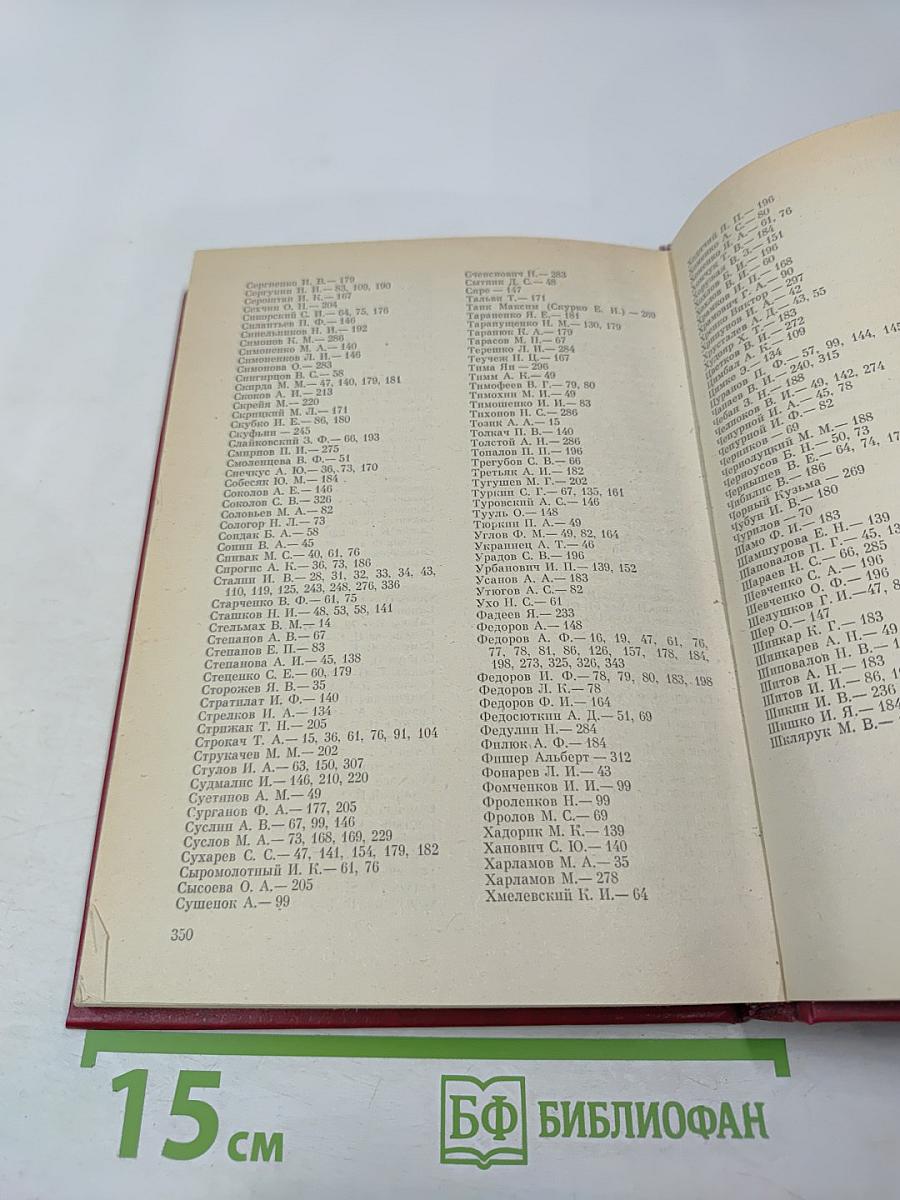 Сергиенко И. В.— 179
Сергунин И. И.— 83, 109, 190
Серошtан И. К.— 167
Сехчин О. Н.— 204
Сикорский С. И.— 64, 75, 176
Силантьев П. Ф.— 146
Синельников Н. И.— 192
Симонов К. М.— 286
Симоненко М. А.— 140
Симоненков Л. И.— 146
Симонова О.— 283
Сингирцов В. С.— 58
Скирда М. М.— 47, 140, 179, 181
Скоков А. И.— 213
Скрейя М.— 220
Скрицкий М. Л.— 171
Скубко И. Е.— 86, 180
Скуфьин — 245
Слайковский З. Ф.— 66, 193
Смирнов П. И.— 275
Смоленцева В. Ф.— 51
Снечкус А. Ю.— 36, 73, 170
Собесяк Ю. М.— 184
Соколов А. Е.— 146
Соколов С. В.— 326
Соловьев М. А.— 82
Сологор Н. Л.— 73
Сондак Б. А.— 58
Сонин В. А.— 45
Спивак М. С.— 40, 61, 76
Спрогис А. К.— 36, 73, 186
Сталин И. В.— 28, 31, 32, 33, 34, 43,
110, 119, 125, 243, 248, 276, 336
Старченко В. Ф.— 61, 75
Сташков Н. И.— 48, 53, 58, 141
Стельмах В. М.— 14
Степанов А. В.— 67
Степанов Е. П.— 83
Степанова А. И.— 45, 138
Стеценко С. Е.— 60, 179
Сторожев Я. В.— 35
Стратилат И. Ф.— 140
Стрелков И. А.— 134
Стрижак Т. Н.— 205
Строкач Т. А.— 15, 36, 61, 76, 91, 104
Струкачев М. М.— 202
Стулов И. А.— 63, 150, 307
Судмалис И.— 146, 210, 220
Суетинов А. М.— 49
Сурганов Ф. А.— 177, 205
Суслин А. В.— 67, 99, 146
Суслов М. А.— 73, 168, 169, 229
Сухарев С. С.— 47, 141, 154, 179, 182
Сыромолотный И. К.— 61, 76
Сысоева О. А.— 205
Сушенок А.— 99
350
Сченснович Н.— 283
Сытник Д. С.— 48
Сяре — 147
Тальви Т.— 171
Танк Максим (Скурко Е. И.) — 269
Тараненко Я. Е.— 181
Таранущенко Н. М.— 130, 179
Таранюк К. А.— 179
Тарасов М. П.— 67
Терешко Л. П.— 284
Теучеж Н. Ц.— 167
Тима Ян — 296
Тимм А. К.— 49
Тимофеев В. Г.— 79, 80
Тимохин М. И.— 49
Тимошенко И. И.— 83
Тихонов Н. С.— 286
Тозик А. А.— 15
Толкач П. В.— 140
Толстой А. Н.— 286
Топалов П. П.— 196
Трегубов С. В.— 66
Третьяк А. И.— 182
Тугушев М. Г.— 202
Туркин С. Г.— 67, 135, 161
Туровский А. С.— 146
Тууль О.— 148
Тюркин П. А.— 49
Углов Ф. М.— 49, 82, 164
Украинец А. Т.— 46
Урадов С. В.— 196
Урбанович И. П.— 139, 152
Усанов А. А.— 183
Утюгов А. С.— 82
Ухо Н. С.— 61
Фадеев Я.— 233
Федоров А.— 148
Федоров А. Ф.— 16, 19, 47, 61, 76,
77, 78, 81, 86, 126, 157, 178, 184,
198, 273, 325, 326, 343
Федоров И. Ф.— 78, 79, 80, 183, 198
Федоров Л. К.— 78
Федоров Ф. И.— 164
Федосюткин А. Д.— 51, 69
Федулин Н.— 284
Филюк А. Ф.— 184
Фишер Альберт — 312
Фонарев Л. И.— 43
Фомченков И. И.— 99
Фроленков Н.— 99
Фролов М. С.— 69
Хадорик М. К.— 139
Ханович С. Ю.— 140
Харламов М. А.— 35
Харламов М.— 278
Хмелевский К. И.— 64
П. П.— 196
С.— 80
А.— 61, 76
В.— 184
В. З.— 151
Б. И.— 196
В.— 60
И. П.— 168
С. А.— 90
Виктор — 297
И. А.— 42
А. Д.— 43, 55
Х. Т.— 183
В. И.— 272
А. К.— 109
Э.— 134
Цуранов П. Ф.— 57, 99, 144, 145
Чапаев В. И.— 240, 315
Чебан З. Н.— 188
В. И.— 49, 142, 274
Чепурной И. А.— 45, 78
Чепурной И. Ф.— 82
Черников — 69
Чернолуцкий М. М.— 188
Черноусов Б. Н.— 50, 73
Чернышев В. Е.— 64, 74,
Чибилис В.— 186
Чорный Кузьма — 269
Чубун И. В.— 180
Чурилов — 70
Шамо Ф. И.— 183
Шамшурова Е. Н.— 139
Шаповалов П. Г.— 45,
Шараев Н. С.— 66, 285
Шевченко С. А.— 196
Шевченко О. Ф.— 196
Шелушков Г. И.—47,
Шер О.— 147
Шинкар К. Г.— 183
Шинкарев А. Н.— 49
Шиповалов Н. В.—
Шитов А. Н.— 183
Шитов И. И.— 86,
Шикин И. В.— 236
Шишко И. Я.— 184
Шклярук М. В.—
15 см
БФ БИБЛИОФАН